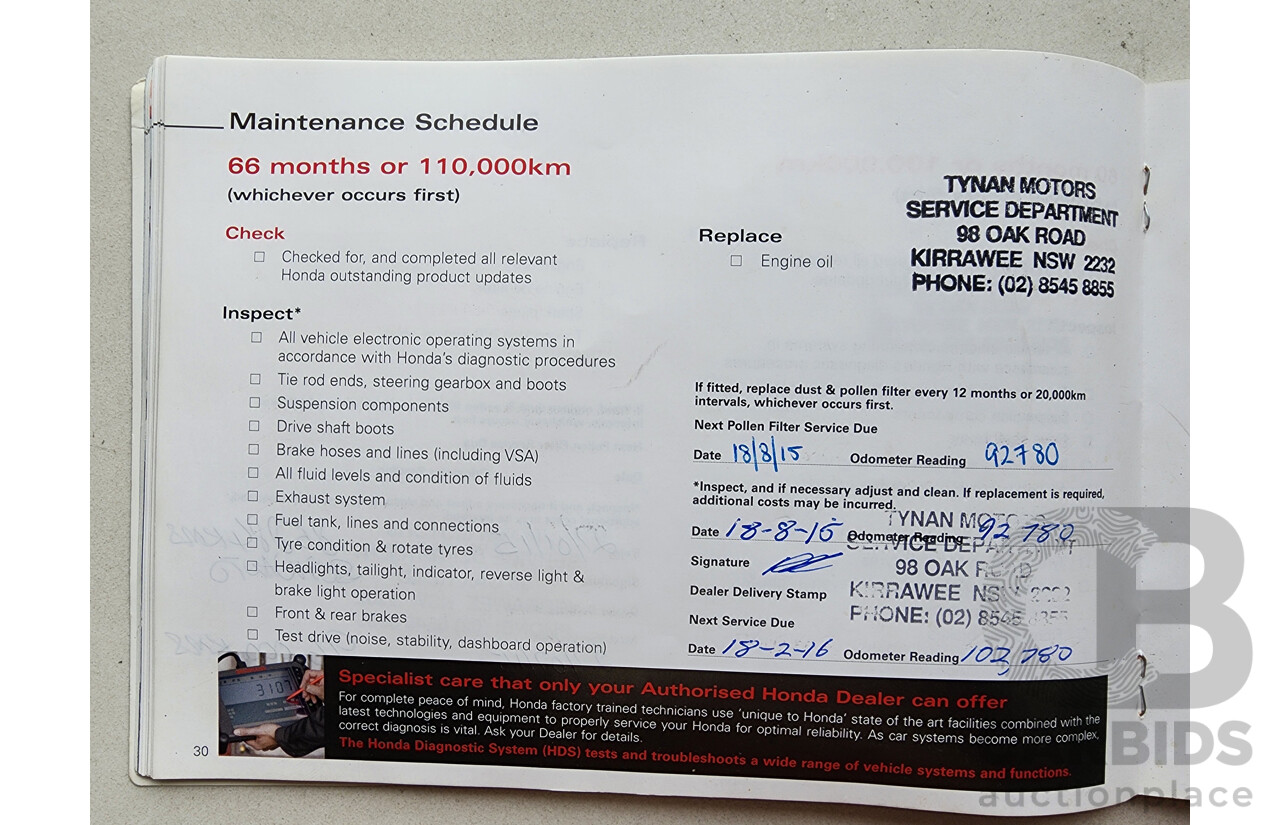 Maintenance Schedule
66 months or 110,000km
(whichever occurs first)
Check
Checked for, and completed all relevant
Honda outstanding product updates
Inspect*
All vehicle electronic operating systems in
accordance with Honda's diagnostic procedures
Tie rod ends, steering gearbox and boots
Suspension components
Drive shaft boots
Brake hoses and lines (including VSA)
All fluid levels and condition of fluids
Exhaust system
Fuel tank, lines and connections
Tyre condition & rotate tyres
Headlights, tailight, indicator, reverse light &
brake light operation
Front & rear brakes
Test drive (noise, stability, dashboard operation)
TYNAN MOTORS
SERVICE DEPARTMENT
98 OAK ROAD
KIRRAWEE NSW 2232
PHONE: (02) 8545 8855
Replace
Engine oil
If fitted, replace dust & pollen filter every 12 months or 20,000km
intervals, whichever occurs first.
Next Pollen Filter Service Due
Date 18/8/15 Odometer Reading 92780
*Inspect, and if necessary adjust and clean. If replacement is required,
additional costs may be incurred.
TYNAN MOTORS
Date 18-8-15 Odometer Reading 92 780
SERVICE DEPARTMENT
Signature
98 OAK ROAD
Dealer Delivery Stamp
KIRRAWEE NSW 2232
PHONE: (02) 8545 8855
Next Service Due
Date 18-2-16 Odometer Reading 102 780
3107
Specialist care that only your Authorised Honda Dealer can offer
For complete peace of mind, Honda factory trained technicians use 'unique to Honda' state of the art facilities combined with the
latest technologies and equipment to properly service your Honda for optimal reliability. As car systems become more complex,
correct diagnosis is vital. Ask your Dealer for details.
The Honda Diagnostic System (HDS) tests and troubleshoots a wide range of vehicle systems and functions.
30
BIDS
auctionplace